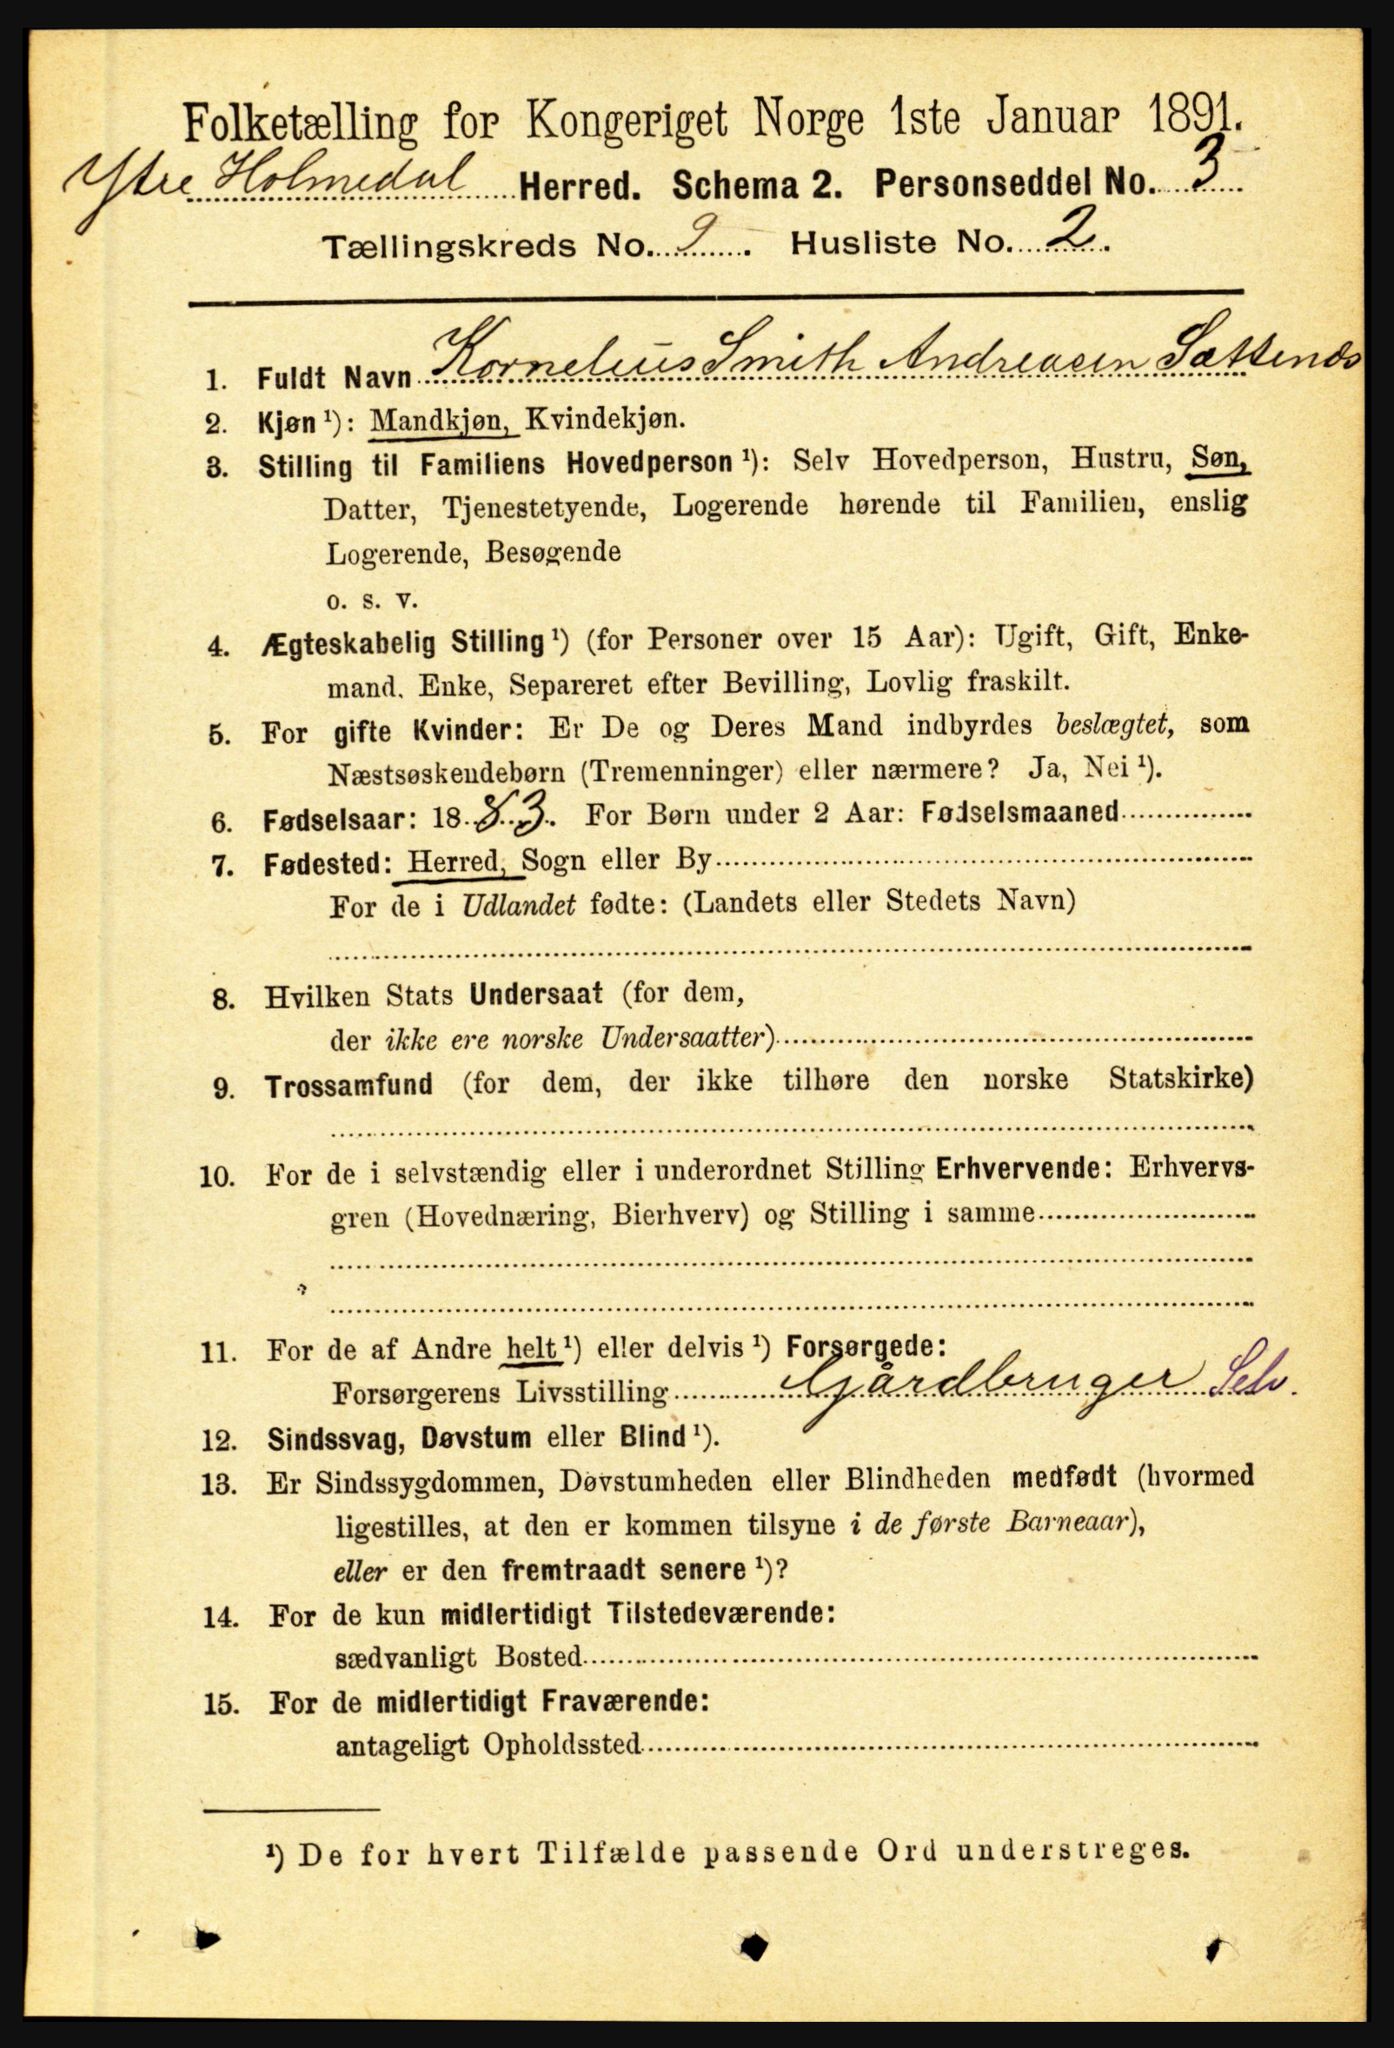 Folketælling for Kongeriget Norge 1ste Januar 1891.
Ytre Holmedal Herred. Schema 2. Personseddel No. 3
Tællingskreds No. 2. Husliste No. 2.
1. Fuldt Navn Kornelius Smith Andreasen Sættenæs
2. Kjøn ¹): Mandkjøn, Kvindekjøn.
3. Stilling til Familiens Hovedperson ¹): Selv Hovedperson, Hustru, Søn,
Datter, Tjenestetyende, Logerende hørende til Familien, enslig
Logerende, Besøgende
o. s. v.
4. Ægteskabelig Stilling ¹) (for Personer over 15 Aar): Ugift, Gift, Enke-
mand, Enke, Separeret efter Bevilling, Lovlig fraskilt.
5. For gifte Kvinder: Er De og Deres Mand indbyrdes beslægtet, som
Næstsøskendebørn (Tremenninger) eller nærmere? Ja, Nei ¹).
6. Fødselsaar: 1883. For Børn under 2 Aar: Fødselsmaaned
7. Fødested: Herred, Sogn eller By
For de i Udlandet fødte: (Landets eller Stedets Navn)
8. Hvilken Stats Undersaat (for dem,
der ikke ere norske Undersaatter)
9. Trossamfund (for dem, der ikke tilhøre den norske Statskirke)
10. For de i selvstændig eller i underordnet Stilling Erhvervende: Erhvervs-
gren (Hovednæring, Bierhverv) og Stilling i samme
11. For de af Andre helt ¹) eller delvis ¹) Forsørgede:
Forsørgerens Livsstilling Gårdbruger Selv.
12. Sindssvag, Døvstum eller Blind ¹).
13. Er Sindssygdommen, Døvstumheden eller Blindheden medfødt (hvormed
ligestilles, at den er kommen tilsyne i de første Barneaar),
eller er den fremtraadt senere ¹)?
14. For de kun midlertidigt Tilstedeværende:
sædvanligt Bosted
15. For de midlertidigt Fraværende:
antageligt Opholdssted
¹) De for hvert Tilfælde passende Ord understreges.